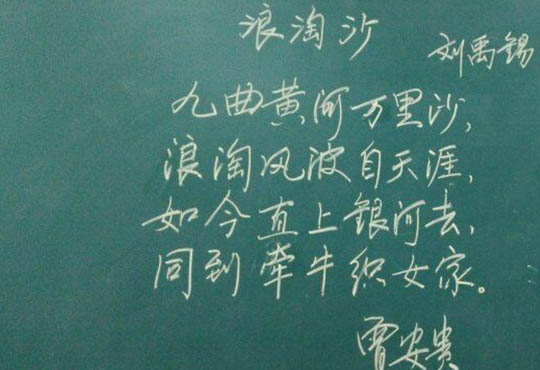 浪淘沙
刘禹锡
九曲黄河万里沙,
浪淘风波自天涯,
如今直上銀河去,
同到牵牛织女家。
曹安贵